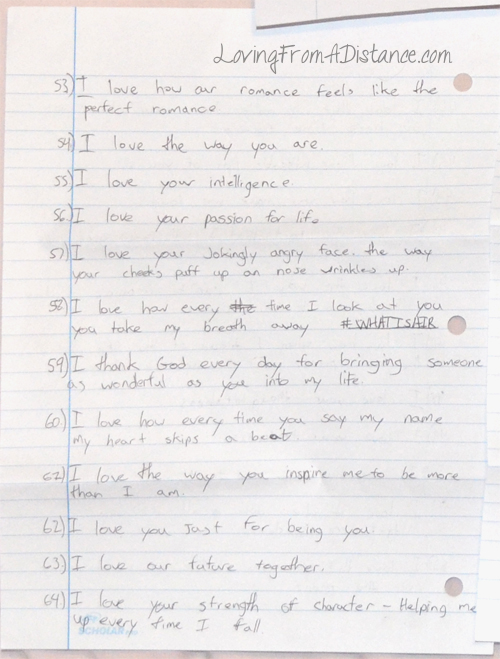 LovingFromADistance.com
53) I love how our romance feels like the
perfect romance
54) I love the way you are.
55) I love your intelligence
56) I love your passion for life
57) I love your Jokingly angry face. the way
your cheeks puff up an nose wrinkles up.
58) I love how every the time I look at you
you take my breath away #WHATISAIR
59) I thank God every day for bringing someone
as wonderful as you into my life.
60) I love how every time you say my name
my heart skips a beat
62) I love the way you inspire me to be more
than I am.
62) I love you Just for being you.
63) I love our future together.
64) I love your strength of character - Helping me
up every time I fall.
SCHOLAR